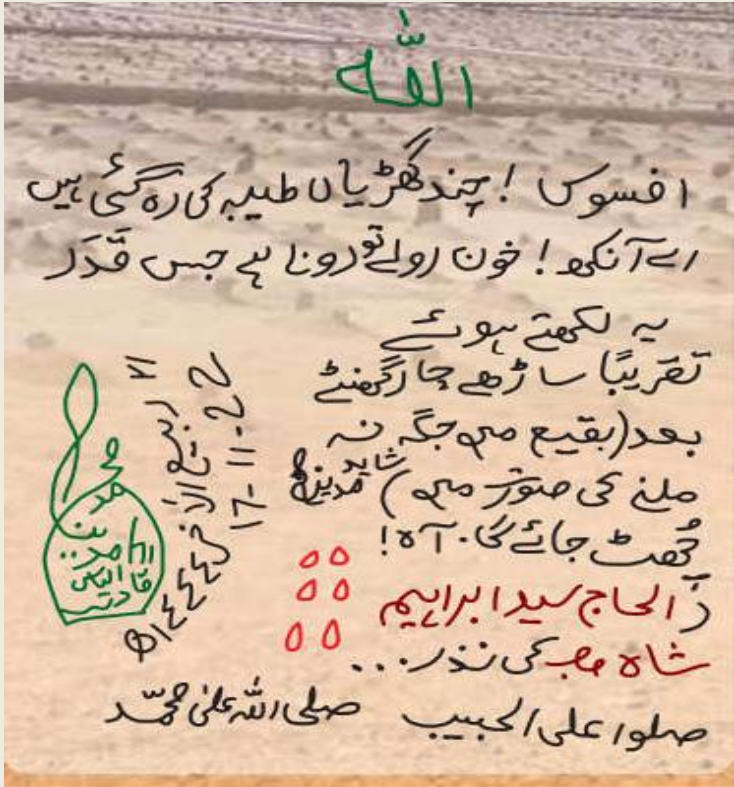 اللّٰه
افسوس! چند گھڑیاں طیبہ کی رہ گئی ہیں
اے آنکھ! خون رولے تو رونا ہے جس قَدَر
یہ لکھتے ہوئے
تقریبًا ساڑھے چار گھنٹے
بعد (بقیع میں جگہ نہ
ملنے کی صورت میں) شاید مدینہ
چُھٹ جائے گا. آہ!
الحاج سید ابراہیم
شاہ صاحب کی نذر...
صلوا علی الحبیب صلی اللّٰہ علیٰ محمّد
ربیع الآخر ١٤٤٤ھ
17-11-22
محمد
الیاس